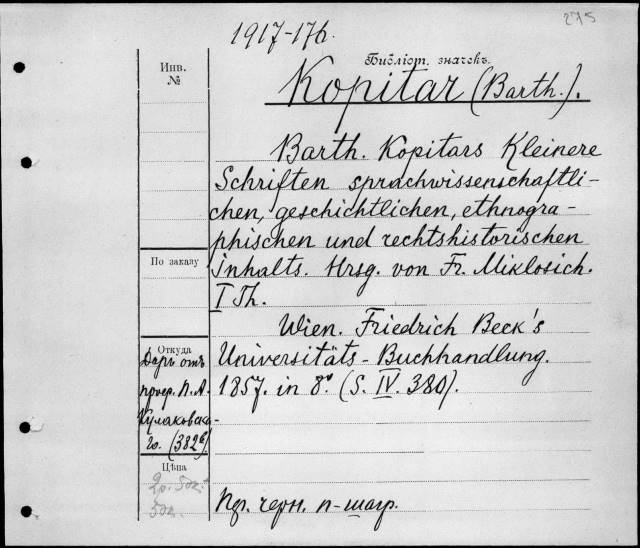 275
1917-176.
Библіот. значекъ.
Инв.
№
Kopitar (Barth.).
Barth. Kopitars Kleinere
Schriften sprachwissenschaftli-
chen, geschichtlichen, ethnogra-
phischen und rechtshistorischen
Inhalts. Hrsg. von Fr. Miklosich.
I Th.
По заказу
Wien. Friedrich Beck's
Universitäts-Buchhandlung.
1857. in 8°. (S. IV. 380).
Откуда
Даръ отъ
проф. П. А.
Кулаковска-
го. (382б)
Цѣна
2р. 50к.
50к.
Пер. черн. п-шагр.